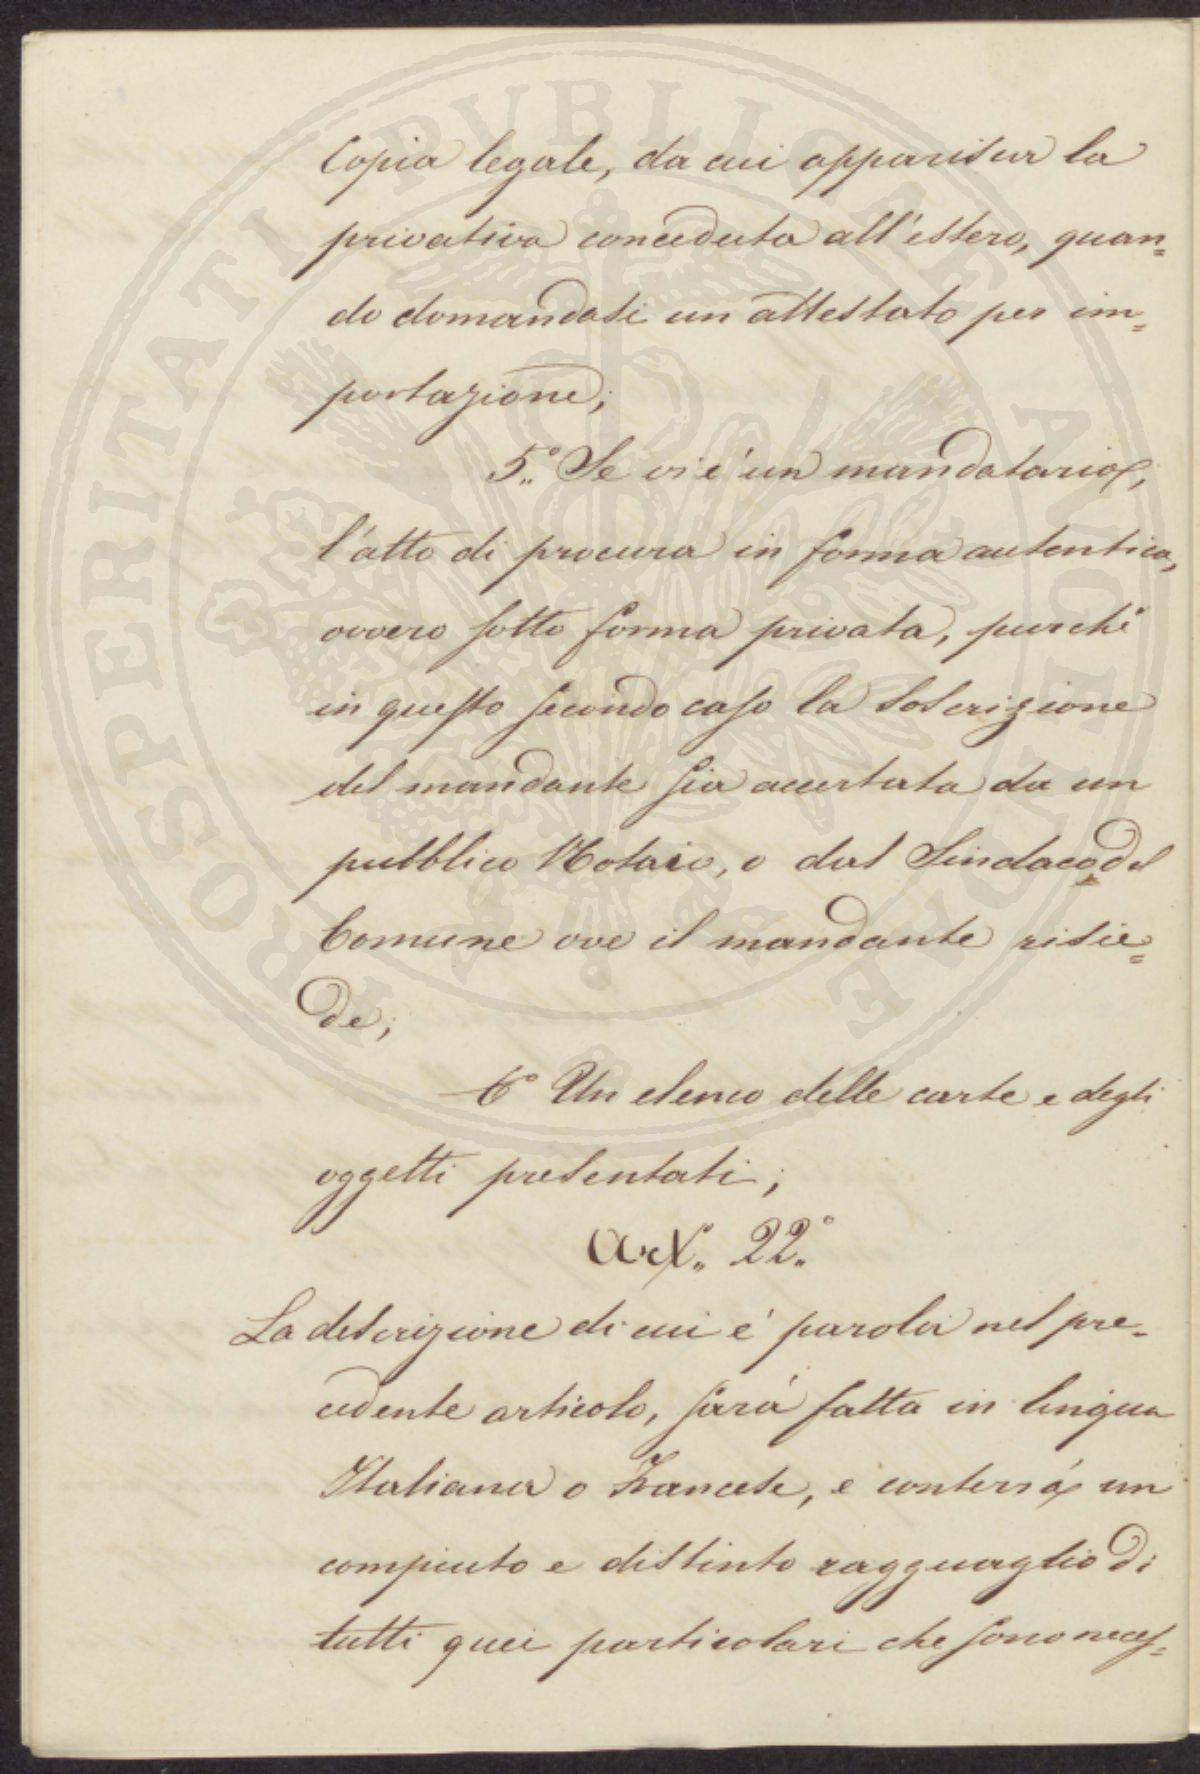 Copia legale, da cui apparisca la
privativa conceduta all'estero, quan=
do domandasi un attestato per im=
portazione;
5.° Se vi è un mandatario,
l'atto di procura in forma autentica,
ovvero sotto forma privata, purchè
in questo secondo caso la soscrizione
del mandante sia accertata da un
pubblico Notaio, o dal Sindaco del
Comune ove il mandante risie=
de;
6° Un elenco delle carte e degli
oggetti presentati;
Art.° 22.°
La descrizione di cui è parola nel pre=
cedente articolo, sarà fatta in lingua
Italiana o Francese, e conterrà un
compiuto e distinto ragguaglio di
tutti quei particolari che sono neces=
PROSPERITATI PUBLICAE AUGENDAE